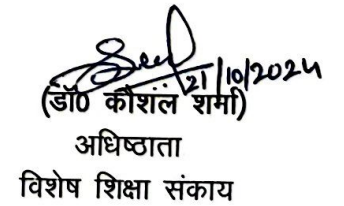 21/10/2024
(डॉ0 कौशल शर्मा)
अधिष्ठाता
विशेष शिक्षा संकाय